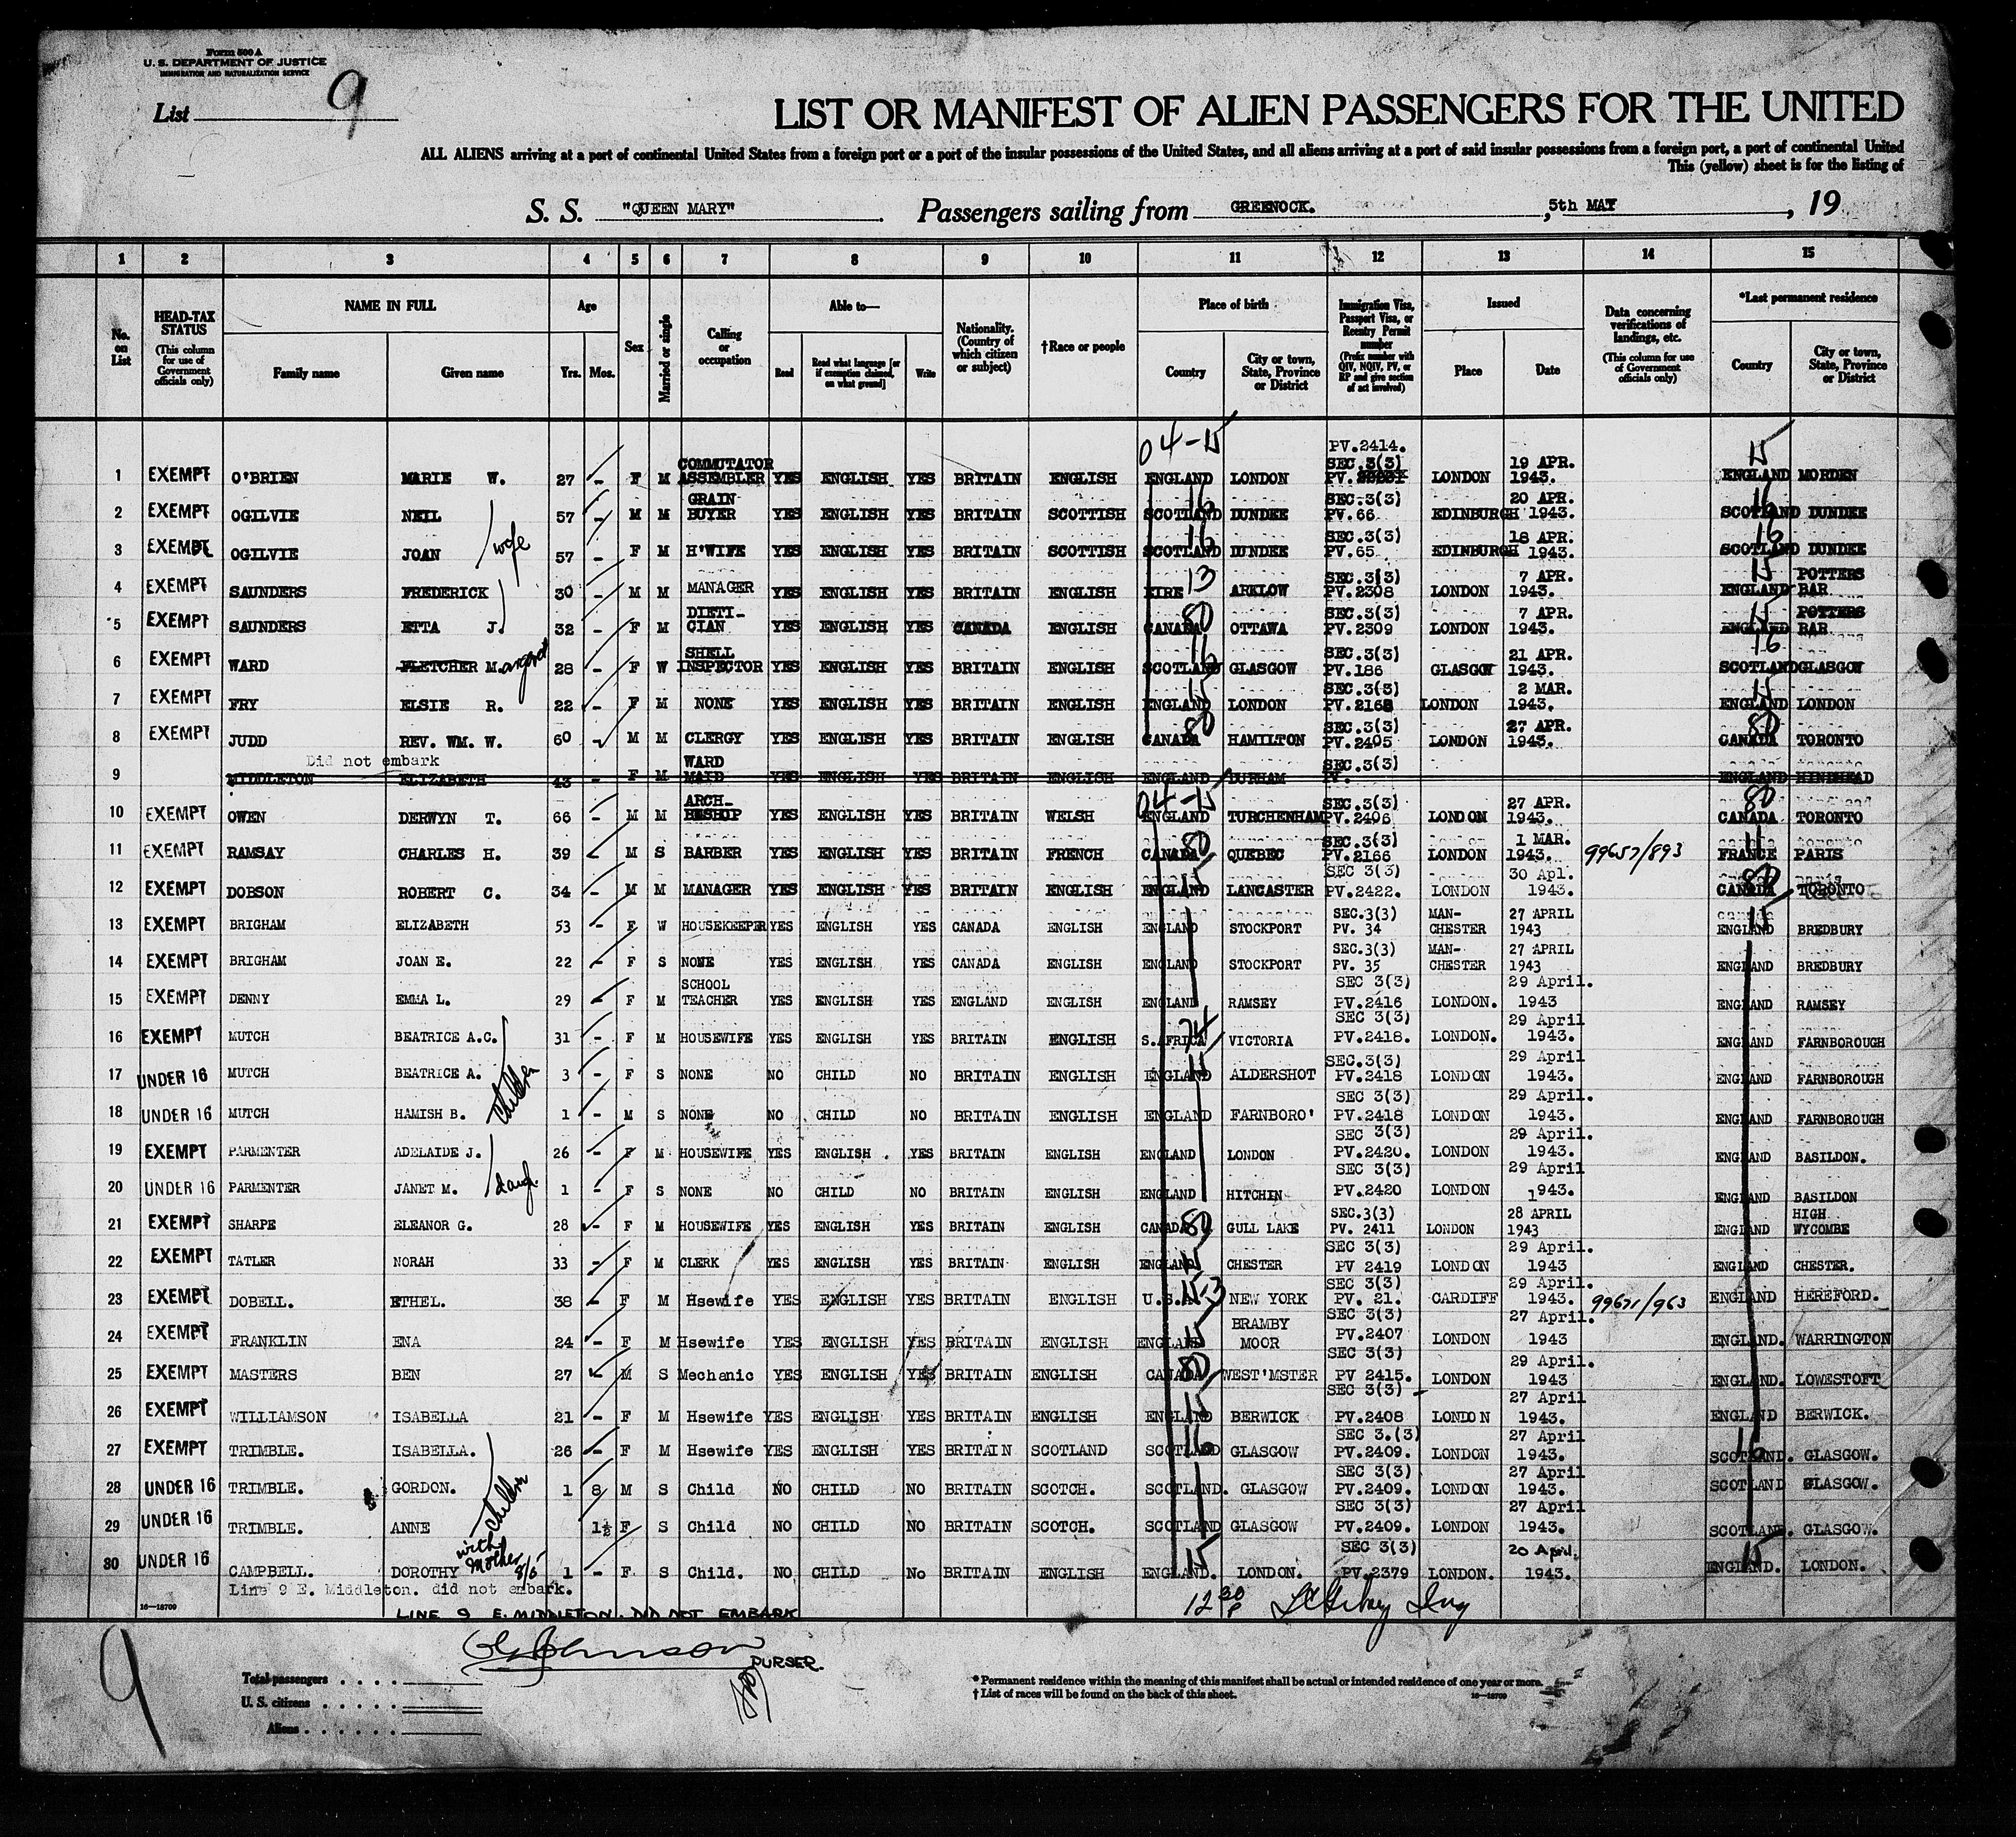 Form 500 A
U. S. DEPARTMENT OF JUSTICE
IMMIGRATION AND NATURALIZATION SERVICE
List 9
LIST OR MANIFEST OF ALIEN PASSENGERS FOR THE UNITED
ALL ALIENS arriving at a port of continental United States from a foreign port or a port of the insular possessions of the United States, and all aliens arriving at a port of said insular possessions from a foreign port, a port of continental United
This (yellow) sheet is for the listing of
S. S. "QUEEN MARY" Passengers sailing from GREENOCK. , 5th MAY , 19
1 2 3 4 5 6 7 8 9 10 11 12 13 14 15
No. on List
HEAD-TAX STATUS (This column for use of Government officials only)
NAME IN FULL Family name Given name
Age Yrs. Mos.
Sex
Married or single
Calling or occupation
Able to— Read Read what language [or if exemption claimed, on what ground] Write
Nationality. (Country of which citizen or subject)
†Race or people
Place of birth Country City or town, State, Province or District
Immigration Visa, Passport Visa, or Reentry Permit number (Prefix number with QIV, NQIV, PV, or RP and give section of act involved)
Issued Place Date
Data concerning verifications of landings, etc. (This column for use of Government officials only)
*Last permanent residence Country City or town, State, Province or District
04-15 PV.2414. 15
1 EXEMPT O'BRIEN MARIE W. 27 - F M COMMUTATOR ASSEMBLER YES ENGLISH YES BRITAIN ENGLISH ENGLAND LONDON SEC.3(3) PV. LONDON 19 APR. 1943. ENGLAND MORDEN
2 EXEMPT OGILVIE NEIL 57 - M M GRAIN BUYER YES ENGLISH YES BRITAIN SCOTTISH SCOTLAND 16 DUNDEE SEC.3(3) PV.66 EDINBURGH 20 APR. 1943. SCOTLAND 16 DUNDEE
3 EXEMPT OGILVIE JOAN wife 57 - F M H'WIFE YES ENGLISH YES BRITAIN SCOTTISH SCOTLAND 16 DUNDEE SEC.3(3) PV.65 EDINBURGH 18 APR. 1943. SCOTLAND 16 DUNDEE
4 EXEMPT SAUNDERS FREDERICK 30 - M M MANAGER YES ENGLISH YES BRITAIN ENGLISH EIRE 13 ARKLOW SEC.3(3) PV.2308 LONDON 7 APR. 1943. ENGLAND 15 POTTERS BAR
5 EXEMPT SAUNDERS ETTA J. 32 - F M DIETI-CIAN YES ENGLISH YES CANADA ENGLISH CANADA 80 OTTAWA SEC.3(3) PV.2309 LONDON 7 APR. 1943. ENGLAND 15 POTTERS BAR
6 EXEMPT WARD FLETCHER Margaret 28 - F W SHELL INSPECTOR YES ENGLISH YES BRITAIN ENGLISH SCOTLAND 16 GLASGOW SEC.3(3) PV.186 GLASGOW 21 APR. 1943. SCOTLAND 16 GLASGOW
7 EXEMPT FRY ELSIE R. 22 - F M NONE YES ENGLISH YES BRITAIN ENGLISH ENGLAND 15 LONDON SEC.3(3) PV.2168 LONDON 2 MAR. 1943. ENGLAND 15 LONDON
8 EXEMPT JUDD REV. WM. W. 60 - M M CLERGY YES ENGLISH YES BRITAIN ENGLISH CANADA 80 HAMILTON SEC.3(3) PV.2405 LONDON 27 APR. 1943. CANADA 80 TORONTO
Did not embark
9 MIDDLETON ELIZABETH 43 - F M WARD MAID YES ENGLISH YES BRITAIN ENGLISH ENGLAND DURHAM SEC.3(3) PV. ENGLAND HINDHEAD
10 EXEMPT OWEN DERWYN T. 66 - M M ARCH-BISHOP YES ENGLISH YES BRITAIN WELSH 04-15 ENGLAND TURCHENHAM SEC.3(3) PV.2406 LONDON 27 APR. 1943. CANADA 80 TORONTO
11 EXEMPT RAMSAY CHARLES H. 39 - M S BARBER YES ENGLISH YES BRITAIN FRENCH CANADA 80 QUEBEC SEC.3(3) PV.2166 LONDON 1 MAR. 1943. 99657/893 FRANCE 11 PARIS
12 EXEMPT DOBSON ROBERT C. 34 - M M MANAGER YES ENGLISH YES BRITAIN ENGLISH ENGLAND 15 LANCASTER SEC 3(3) PV.2422. LONDON 30 Apl. 1943. CANADA 80 TORONTO
13 EXEMPT BRIGHAM ELIZABETH 53 - F W HOUSEKEEPER YES ENGLISH YES CANADA ENGLISH ENGLAND STOCKPORT SEC.3(3) PV. 34 MAN-CHESTER 27 APRIL 1943 ENGLAND 15 BREDBURY
14 EXEMPT BRIGHAM JOAN E. 22 - F S NONE YES ENGLISH YES CANADA ENGLISH ENGLAND STOCKPORT SEC.3(3) PV. 35 MAN-CHESTER 27 APRIL 1943 ENGLAND BREDBURY
15 EXEMPT DENNY EMMA L. 29 - F M SCHOOL TEACHER YES ENGLISH YES ENGLAND ENGLISH ENGLAND RAMSEY SEC 3(3) PV.2416 LONDON. 29 April. 1943 ENGLAND RAMSEY
16 EXEMPT MUTCH BEATRICE A.C. 31 - F M HOUSEWIFE YES ENGLISH YES BRITAIN ENGLISH S.AFRICA 74 VICTORIA SEC 3(3) PV.2418. LONDON. 29 April 1943. ENGLAND FARNBOROUGH
17 UNDER 16 MUTCH BEATRICE A. children 3 - F S NONE NO CHILD NO BRITAIN ENGLISH ENGLAND 15 ALDERSHOT SEC.3(3) PV.2418 LONDON 29 April 1943. ENGLAND FARNBOROUGH
18 UNDER 16 MUTCH HAMISH B. 1 - M S NONE NO CHILD NO BRITAIN ENGLISH ENGLAND FARNBORO' SEC 3(3) PV.2418 LONDON 29 April. 1943. ENGLAND FARNBOROUGH
19 EXEMPT PARMENTER ADELAIDE J. 26 - F M HOUSEWIFE YES ENGLISH. YES BRITAIN ENGLISH ENGLAND LONDON SEC 3(3) PV.2420. LONDON 29 April. 1943. ENGLAND BASILDON.
20 UNDER 16 PARMENTER JANET M. daugh. 1 - F S NONE NO CHILD NO BRITAIN ENGLISH ENGLAND HITCHIN SEC 3(3) PV.2420 LONDON 29 April 1943. ENGLAND BASILDON
21 EXEMPT SHARPE ELEANOR G. 28 - F M HOUSEWIFE YES ENGLISH YES BRITAIN ENGLISH CANADA 80 GULL LAKE SEC.3(3) PV. 2411 LONDON 28 APRIL 1943 ENGLAND HIGH WYCOMBE
22 EXEMPT TATLER NORAH 33 - F M CLERK YES ENGLISH YES BRITAIN ENGLISH ENGLAND 15 CHESTER SEC 3(3) PV 2419 LONDON 29 April. 1943 ENGLAND CHESTER.
23 EXEMPT DOBELL. ETHEL. 38 - F M Hsewife YES ENGLISH YES BRITAIN ENGLISH U.S.A. NEW YORK SEC 3(3) PV. 21. CARDIFF 29 April. 1943. 99671/963 ENGLAND HEREFORD.
24 EXEMPT FRANKLIN ENA 24 - F M Hsewife YES ENGLISH YES BRITAIN ENGLISH ENGLAND 15 BRAMBY MOOR SEC 3(3) PV.2407 LONDON 27 April. 1943 ENGLAND. WARRINGTON
25 EXEMPT MASTERS BEN 27 - M S Mechanic YES ENGLISH YES BRITAIN ENGLISH CANADA 80 WEST'MSTER SEC 3(3) PV 2415. LONDON 29 April. 1943 ENGLAND. LOWESTOFT
26 EXEMPT WILLIAMSON ISABELLA 21 - F M Hsewife YES ENGLISH YES BRITAIN ENGLISH ENGLAND 15 BERWICK SEC 3(3) PV.2408 LONDON 27 April 1943. ENGLAND BERWICK.
27 EXEMPT TRIMBLE. ISABELLA. 26 - F M Hsewife YES ENGLISH YES BRITAIN SCOTLAND SCOTLAND 16 GLASGOW SEC 3.(3) PV.2409. LONDON 27 April 1943. SCOTLAND. 16 GLASGOW.
28 UNDER 16 TRIMBLE. GORDON. children 1 8 M S Child NO CHILD NO BRITAIN SCOTCH. SCOTLAND. GLASGOW SEC 3(3) PV.2409. LONDON 27 April 1943. SCOTLAND GLASGOW.
29 UNDER 16 TRIMBLE. ANNE 1½ F S Child NO CHILD NO BRITAIN SCOTCH. SCOTLAND GLASGOW SEC 3(3) PV.2409. LONDON 27 April 1943. SCOTLAND. GLASGOW.
30 UNDER 16 CAMPBELL. DOROTHY with Mother 8/5 1 - F S Child. NO CHILD No BRITAIN ENGLISH ENGLAND. 15 LONDON. SEC 3(3) PV.2379 LONDON. 20 April. 1943. ENGLAND. 15 LONDON.
Line 9 E. Middleton. did not embark.
16—18709
LINE 9 E. MIDDLETON. DID NOT EMBARK
12 30 P
Johnson PURSER.
9
Total passengers
U. S. citizens
Aliens
* Permanent residence within the meaning of this manifest shall be actual or intended residence of one year or more.
† List of races will be found on the back of this sheet.
16—18709